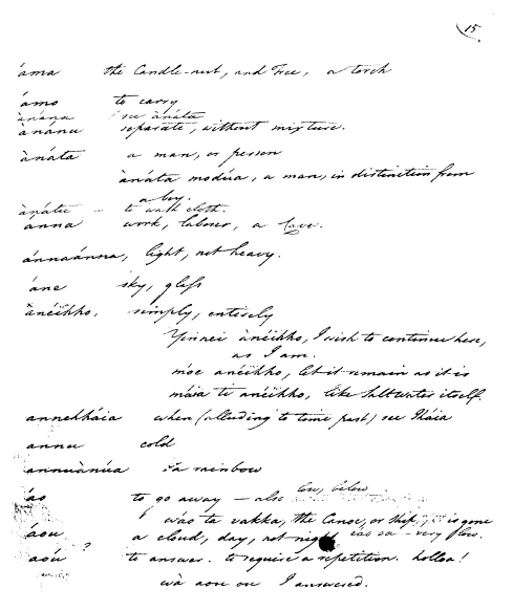 15
áma the Candle-nut, and Tree, a torch
ámo to carry
ànána see ànáta
ànanu separate, without mixture.
ànáta a man, or person
ànáta modúa, a man, in distinction from
a boy.
ànátu to wash cloth.
anna work, labour, a
ánnaánna, light, not heavy.
áne sky, glass
ànéikho, simply, entirely
Yinnei ànéikho, I wish to continue here,
as I am.
móe anéikho, let it remain as it is
máia te anéikho, like Salt water itself.
annekháia when (alluding to time past) see Iháia
annu cold
annuànúa a rainbow
áo to go away — also low, below
wáo ta vakka, the Canoe, or Ship, is gone
áou a cloud, day, not night very slow.
aoú ? to answer. to require a repetition. holloa!
wà aou ou I answered.